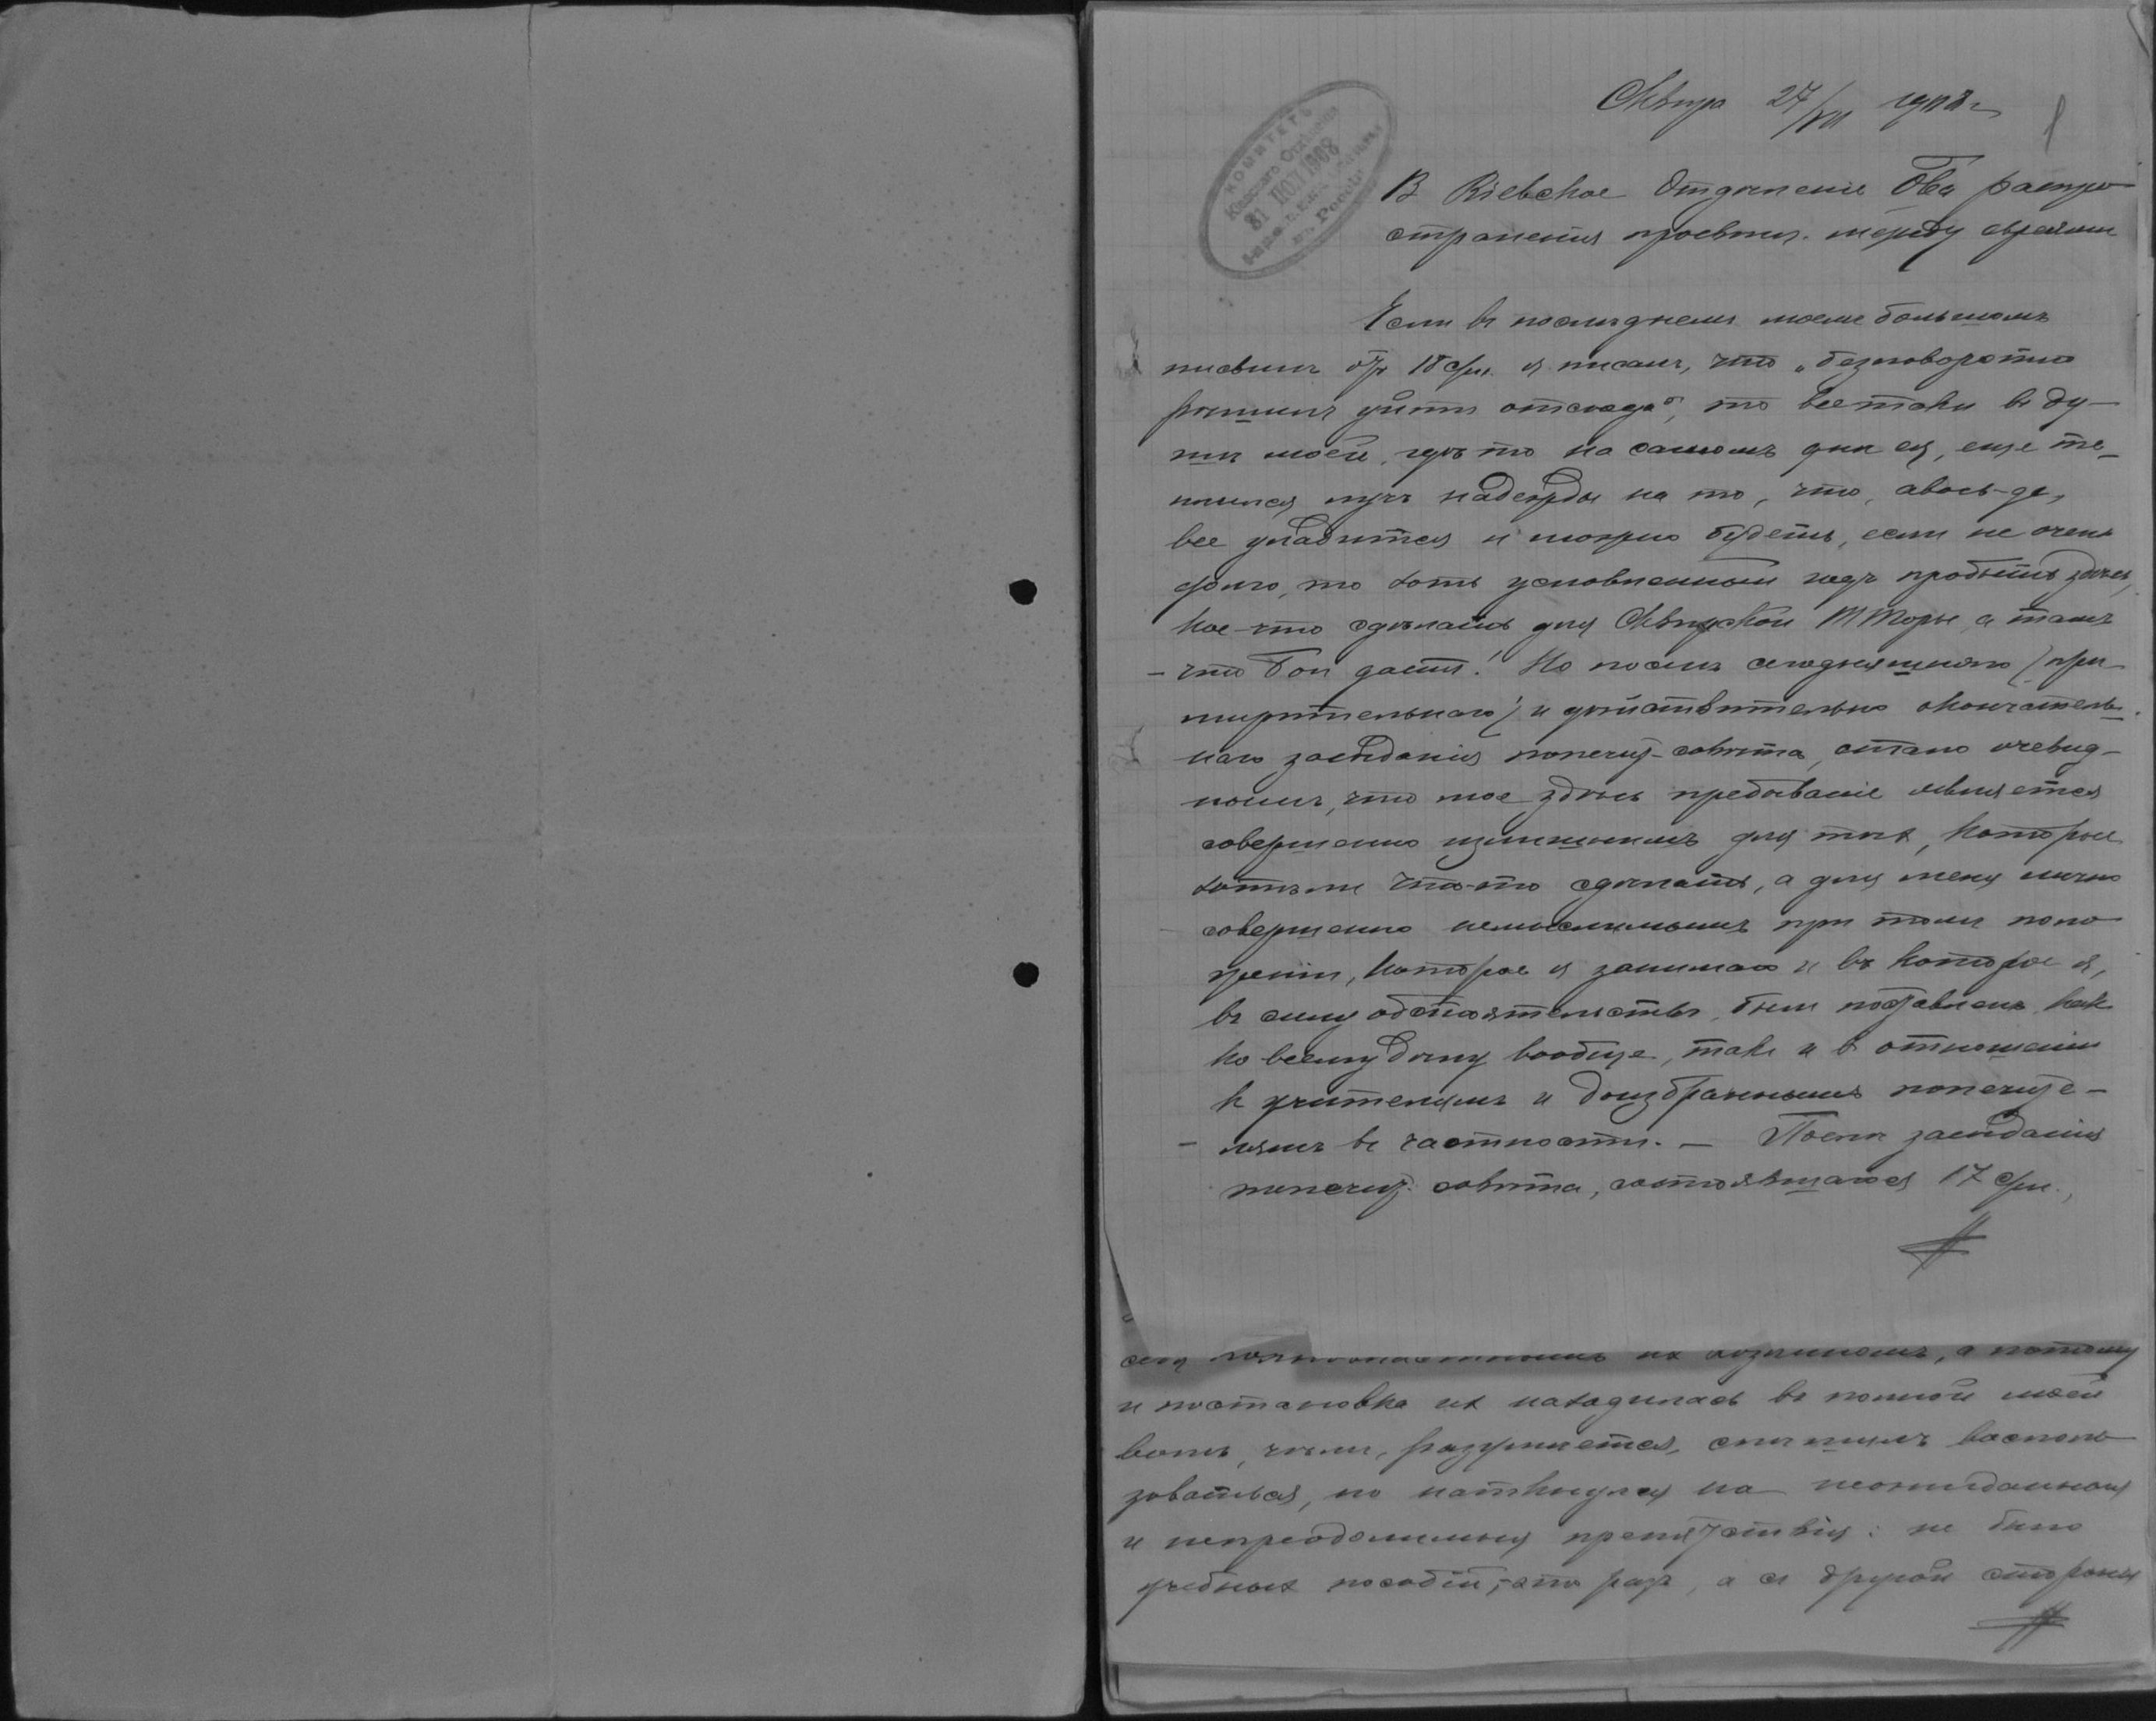 Сквира 27/VII 1908 г.
1
КОМИТЕТЪ
Кіевскаго Отдѣленія
31 ІЮЛ 1908
въ Россіи
В Кіевское Отдѣленіе О-ва распро
странения просвѣщ. между евреями
Если въ послѣднемъ моемъ большомъ
письмѣ отъ 18 с/м. я писалъ, что „безповоротно
рѣшилъ уйти отсюда", то всетаки въ ду-
шѣ моей, гдѣ то на самомъ днѣ ея, еще те-
плился лучъ надежды на то, что, авось-де,
все уладится и можно будетъ, если не очень
долго, то хоть условленный годъ пробыть здѣсь,
кое-что сдѣлать для Сквирской Т Торы, а тамъ
– что Бог дастъ! Но послѣ сегодняшняго (при-
мирительнаго) и дѣйствительно окончатель-
наго засѣданія попечит. совѣта, стало очевид-
нымъ, что мое здѣсь пребываніе является
совершенно излишнимъ для тѣхъ, которые
хотѣли что-то сдѣлать, а для меня лично
совершенно немыслимымъ при томъ поло
женіи, которое я занимаю и въ которое я,
въ силу обстоятельствъ, былъ поставленъ, как
ко всему дѣлу вообще, такъ и в отношеніи
к учителямъ и доизбраннымъ попечите-
– лямъ въ частности. — Послѣ засѣданія
попечит. совѣта, состоявшагося 17 с/м.,
их хозяиномъ, а потому
и постановка их находилась въ полной моей
волѣ, чѣмъ, разумѣется, спѣшилъ восполь
зоваться, но наткнулся на неожиданныя
и непреодолимыя препятствія: не было
учебных пособій,-это разъ, а съ другой стороны